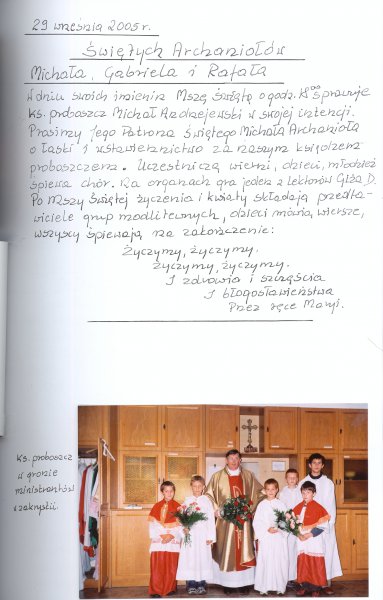 29 września 2005 r.
Świętych Archaniołów
Michała, Gabriela i Rafała
W dniu swoich imienin Mszę Świętą o godz. 18⁰⁰ sprawuje
ks. proboszcz Michał Andrzejewski w swojej intencji.
Prosimy Jego Patrona Świętego Michała Archanioła
o łaski i wstawiennictwo za naszym księdzem
proboszczem. Uczestniczą wierni, dzieci, młodzież
śpiewa chór. Na organach gra jeden z lektorów Giża D.
Po Mszy Świętej życzenia i kwiaty składają przedsta-
wiciele grup modlitewnych, dzieci mówią wiersze,
wszyscy śpiewają na zakończenie:
Życzymy, życzymy.
życzymy, życzymy.
I zdrowia i szczęścia
I błogosławieństwa
Przez ręce Maryi.
ks. proboszcz
w gronie
ministrantów
w zakrystii.